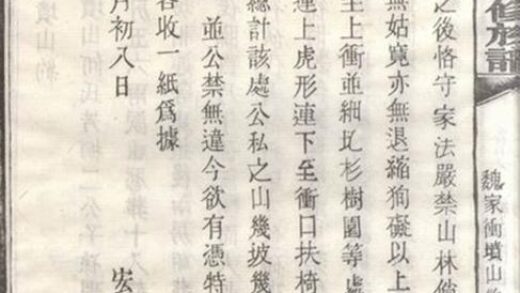 修族譜
魏家衝墳山
之後恪守家法嚴禁山林偷
無姑寬亦無退縮狥礙以上
至上衝並細圫杉樹園等處
連上虎形連下至衝口扶椅
總計該處公私之山幾坡幾
並公禁無違今欲有憑特
各收一紙爲據
月初八日
宏